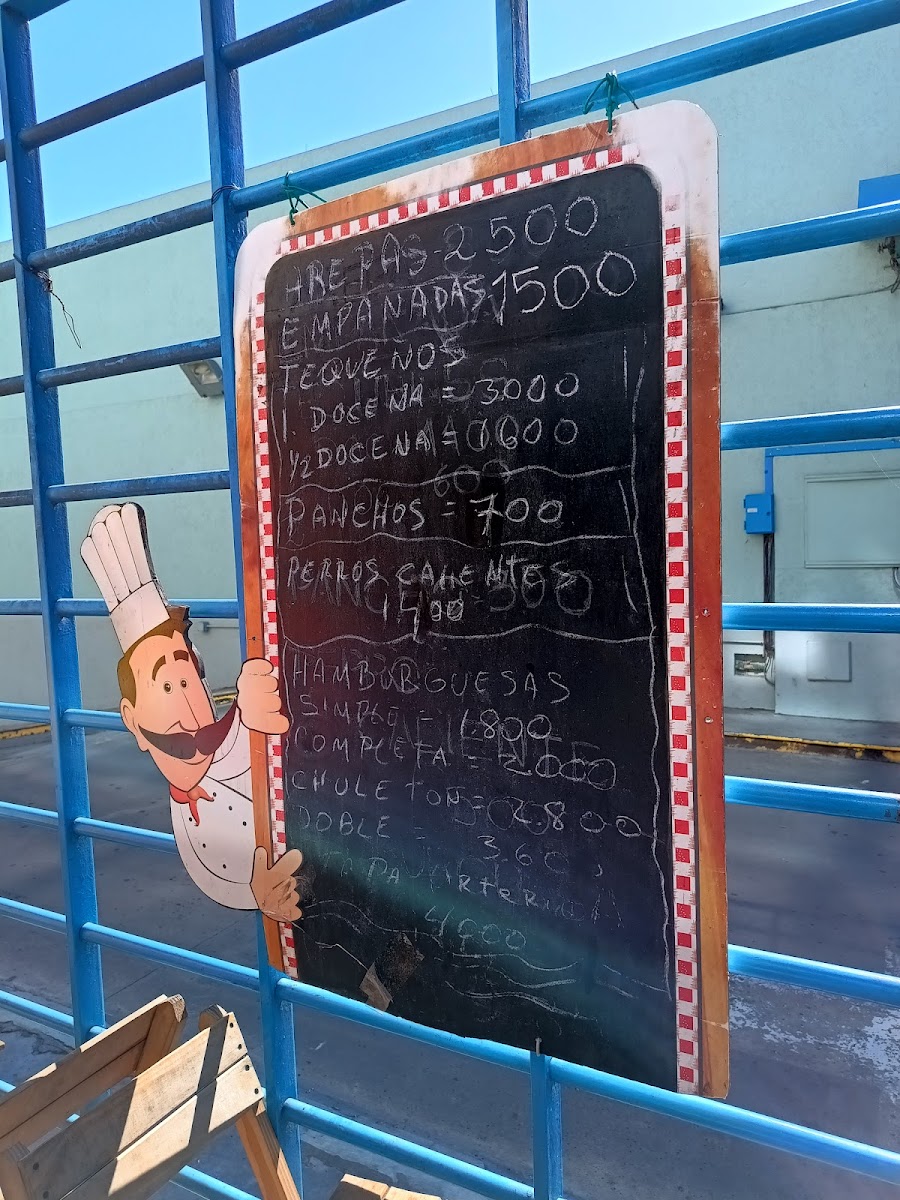 AREPAS 2500
EMPANADAS 1500
TEQUEÑOS
1. DOCENA = 3000
1/2 DOCENA = 1600
PANCHOS = 700
PERROS CALIENTES
1400
HAMBURGUESAS
SIMPLE = 1.800
COMPLETA = 2000
CHULETON = 2.800
DOBLE =
3.60
4000